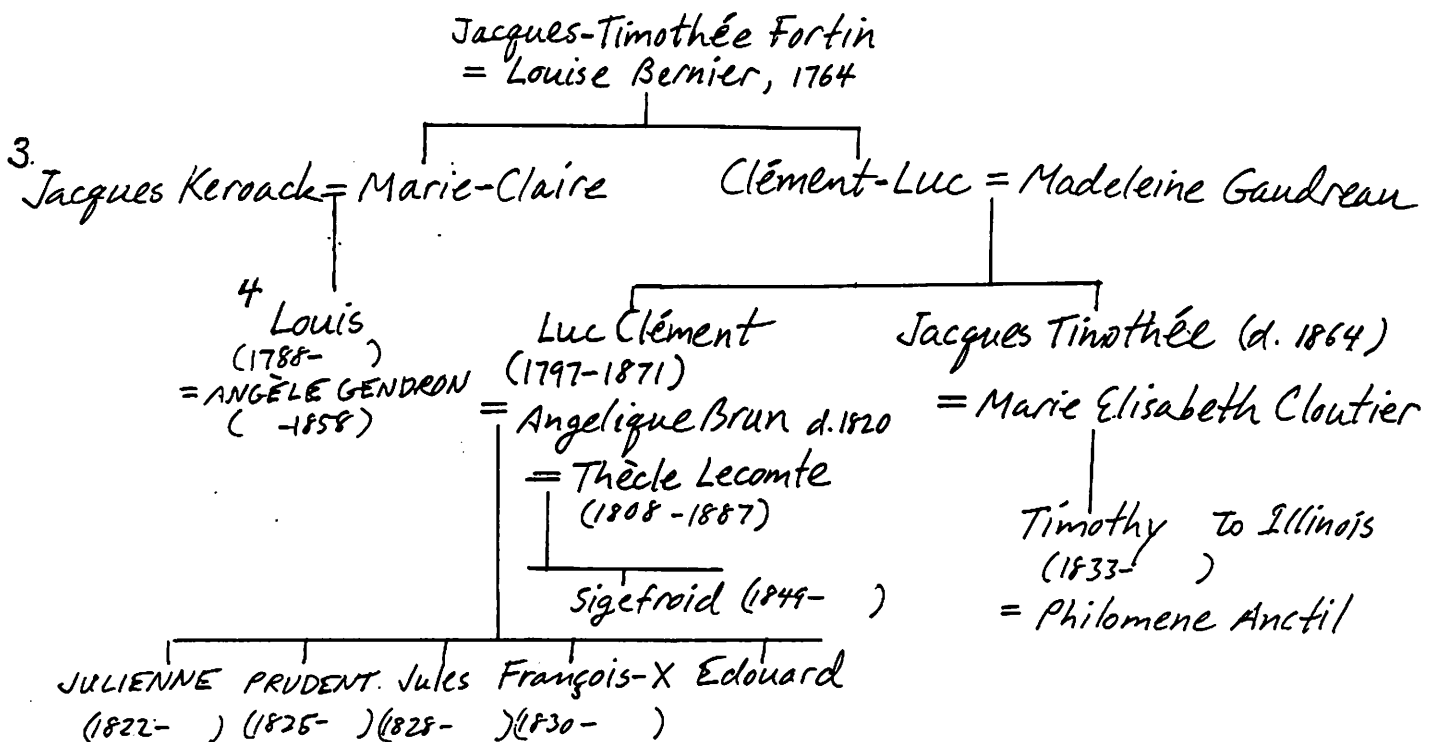 Jacques-Timothée Fortin
= Louise Bernier, 1764
3.
Jacques Keroack = Marie-Claire
Clément-Luc = Madeleine Gaudreau
4
Louis
(1788- )
= ANGÈLE GENDRON
( -1858)
Luc Clément
(1797-1871)
= Angelique Brun d. 1820
= Thècle Lecomte
(1808-1887)
Sigefroid (1849- )
Jacques Timothée (d. 1864)
= Marie Elisabeth Cloutier
Timothy To Illinois
(1833- )
= Philomene Anctil
JULIENNE PRUDENT. Jules François-X Edouard
(1822- ) (1825- ) (1828- ) (1830- )